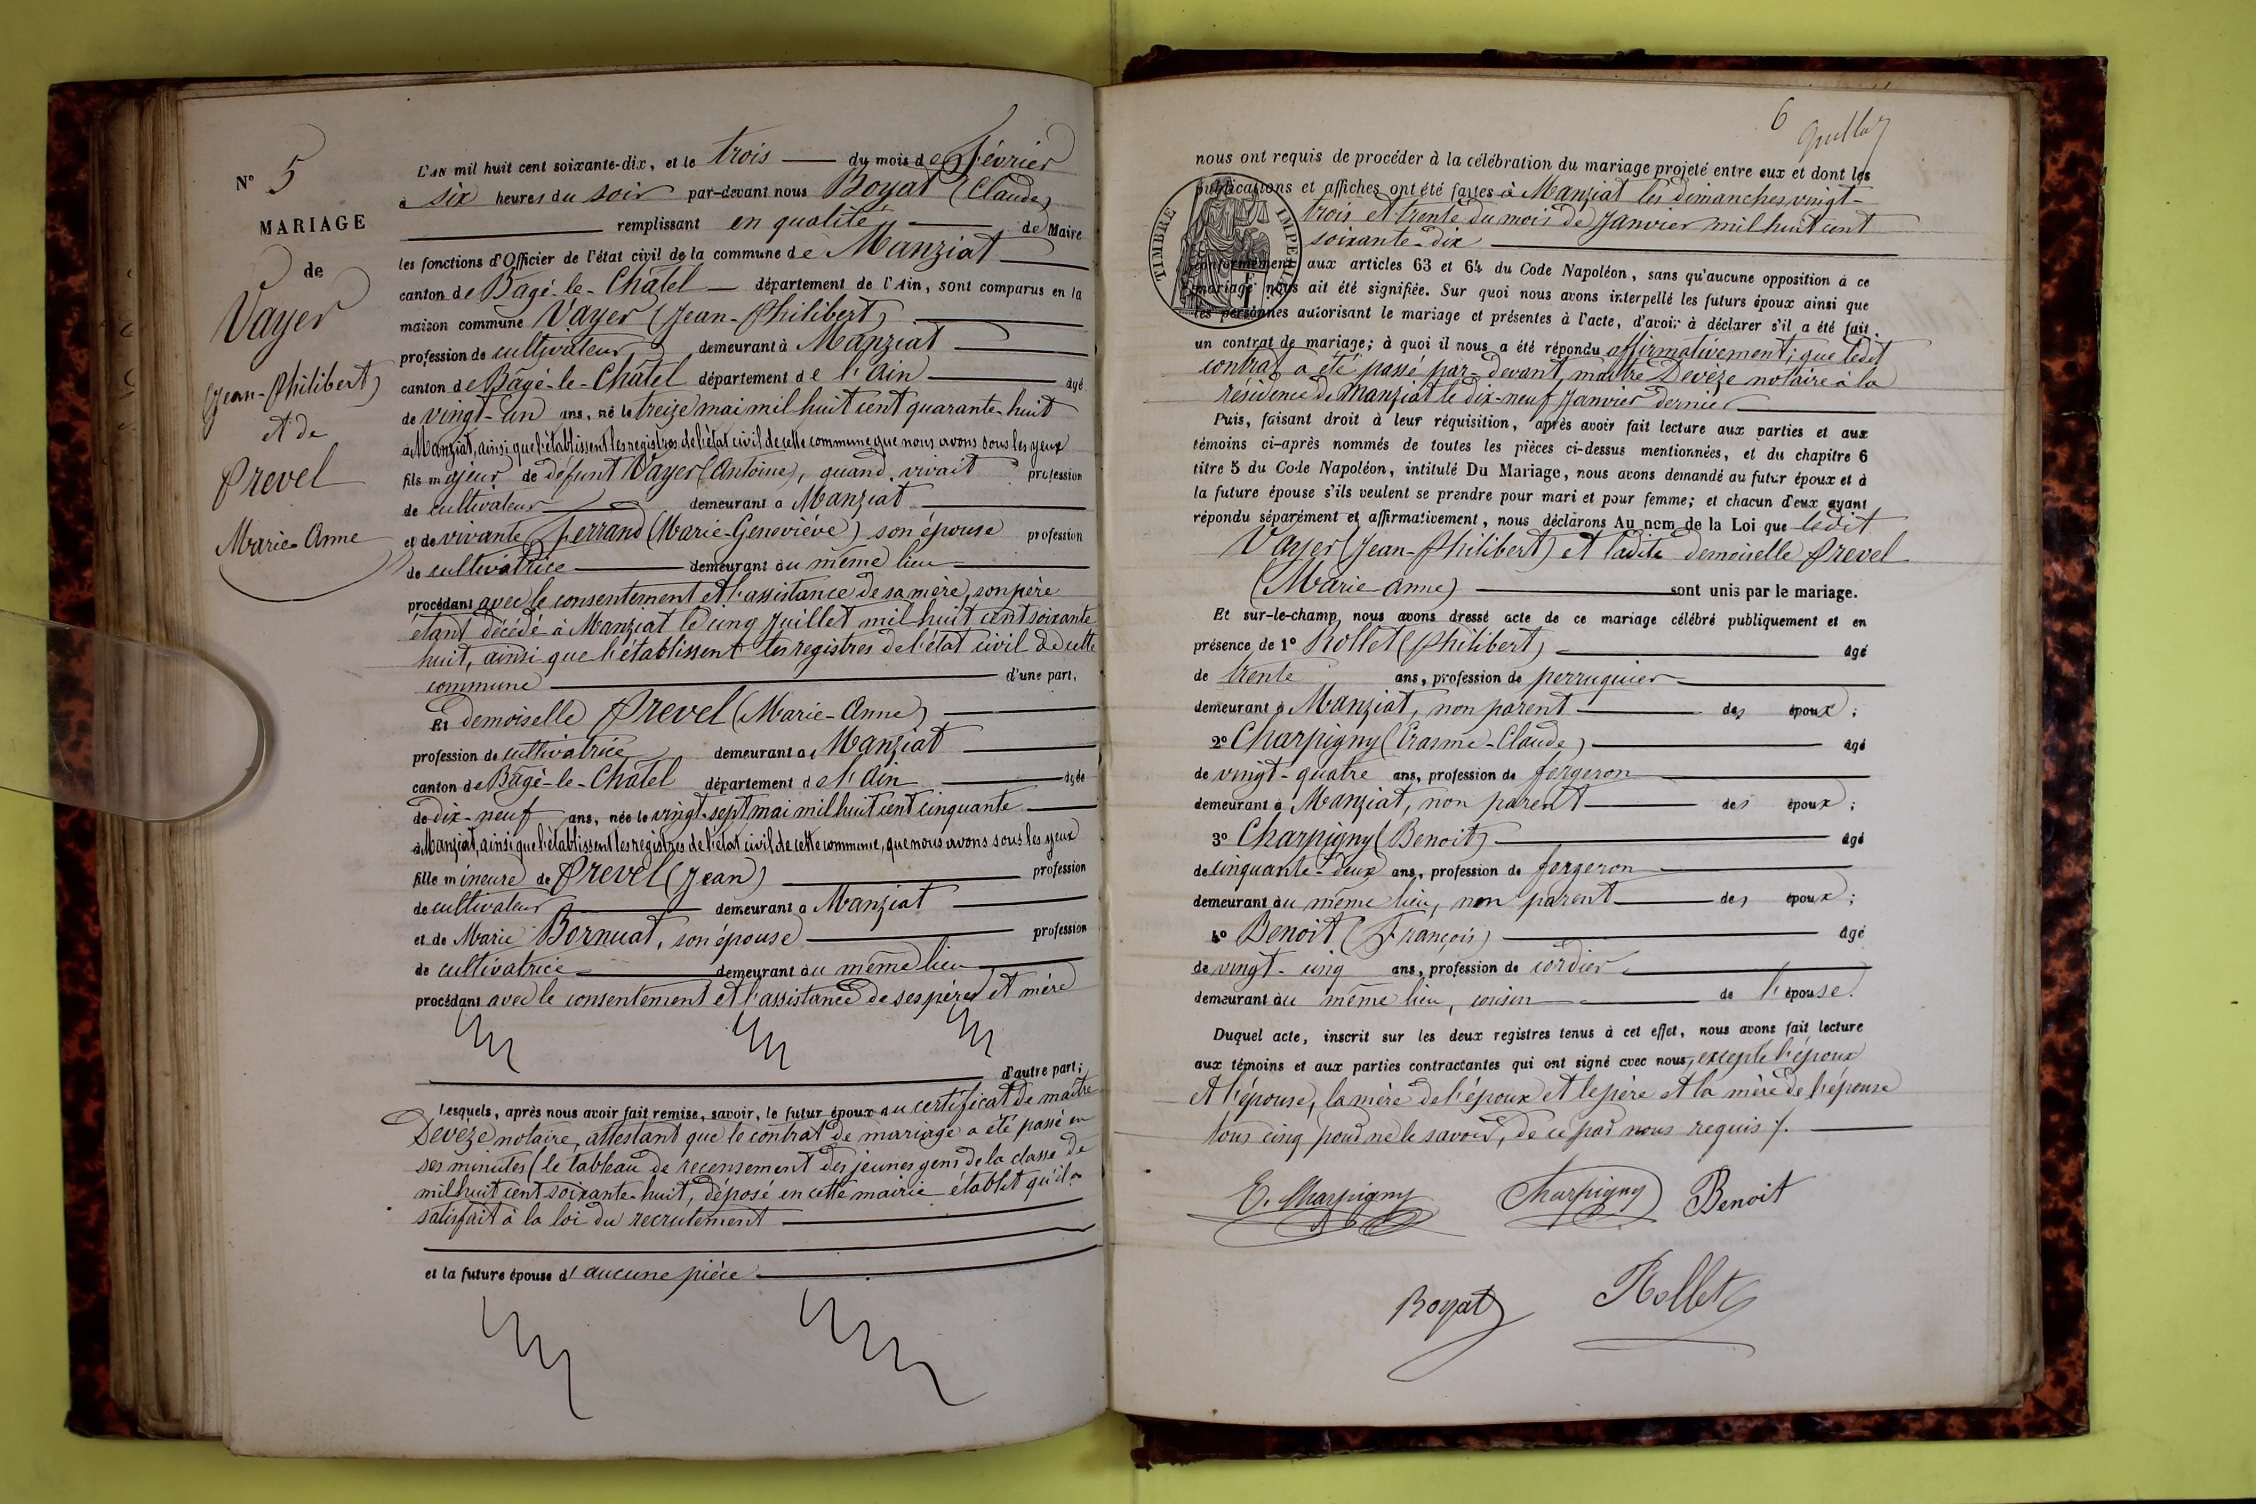 N° 5
MARIAGE
de
Vayer
(Jean-Philibert)
et de
Prevel
Marie-Anne
L'AN mil huit cent soixante-dix, et le trois du mois de Février
à six heures du soir par-devant nous Boyat (Claude)
remplissant en qualité de Maire
les fonctions d'Officier de l'état civil de la commune de Manziat
canton de Bâgé-le-Châtel département de l'Ain, sont comparus en la
maison commune Vayer (Jean-Philibert)
profession de cultivateur demeurant à Manziat
canton de Bâgé-le-Châtel département de l'Ain âgé
de vingt-un ans, né le treize mai mil huit cent quarante-huit
à Manziat, ainsi que l'établissent les registres de l'état civil de cette commune que nous avons sous les yeux
fils majeur de défunt Vayer (Antoine), quand vivait profession
de cultivateur demeurant à Manziat
et de vivante Ferrand (Marie-Geneviève) son épouse profession
de cultivatrice demeurant au même lieu
procédant avec le consentement et l'assistance de sa mère, son père
étant décédé à Manziat le cinq Juillet mil huit cent soixante
huit, ainsi que l'établissent les registres de l'état civil de cette
commune d'une part,
Et demoiselle Prevel (Marie-Anne)
profession de cultivatrice demeurant à Manziat
canton de Bâgé-le-Châtel département de l'Ain âgée
de dix-neuf ans, née le vingt-sept mai mil huit cent cinquante
à Manziat, ainsi que l'établissent les registres de l'état civil de cette commune, que nous avons sous les yeux
fille mineure de Prevel (Jean) profession
de cultivateur demeurant à Manziat
et de Marie Bornuat, son épouse profession
de cultivatrice demeurant au même lieu
procédant avec le consentement et l'assistance de ses père et mère
d'autre part;
Lesquels, après nous avoir fait remise, savoir, le futur époux du certificat de maître
Devèze notaire, attestant que le contrat de mariage a été passé en
ses minutes (le tableau de recensement des jeunes gens de la classe de
mil huit cent soixante-huit, déposé en cette mairie établit qu'il a
satisfait à la loi du recrutement
et la future épouse d'aucune pièce
6
nous ont requis de procéder à la célébration du mariage projeté entre eux et dont les
publications et affiches ont été faites à Manziat les dimanches vingt-
trois et trente du mois de Janvier mil huit cent
soixante-dix
TIMBRE IMPERIAL
conformément aux articles 63 et 64 du Code Napoléon, sans qu'aucune opposition à ce
mariage nous ait été signifiée. Sur quoi nous avons interpellé les futurs époux ainsi que
les personnes autorisant le mariage et présentes à l'acte, d'avoir à déclarer s'il a été fait
un contrat de mariage; à quoi il nous a été répondu affirmativement; que ledit
contrat a été passé par-devant maître Devèze notaire à la
résidence de Manziat le dix-neuf Janvier dernier
Puis, faisant droit à leur réquisition, après avoir fait lecture aux parties et aux
témoins ci-après nommés de toutes les pièces ci-dessus mentionnées, et du chapitre 6
titre 5 du Code Napoléon, intitulé Du Mariage, nous avons demandé au futur époux et à
la future épouse s'ils veulent se prendre pour mari et pour femme; et chacun d'eux ayant
répondu séparément et affirmativement, nous déclarons Au nom de la Loi que ledit
Vayer (Jean-Philibert) et ladite demoiselle Prevel
(Marie-Anne) sont unis par le mariage.
Et sur-le-champ, nous avons dressé acte de ce mariage célébré publiquement et en
présence de 1° Rollet (Philibert) âgé
de trente ans, profession de perruquier
demeurant à Manziat, non parent des époux;
2° Charpigny (Erasme-Claude) âgé
de vingt-quatre ans, profession de forgeron
demeurant à Manziat, non parent des époux;
3° Charpigny (Benoit) âgé
de cinquante-deux ans, profession de forgeron
demeurant au même lieu, non parent des époux;
4° Benoit (François) âgé
de vingt-cinq ans, profession de cordier
demeurant au même lieu, cousin de l'épouse.
Duquel acte, inscrit sur les deux registres tenus à cet effet, nous avons fait lecture
aux témoins et aux parties contractantes qui ont signé avec nous, excepté l'époux
et l'épouse, la mère de l'époux et le père et la mère de l'épouse
tous cinq pour ne le savoir, de ce par nous requis /.
E. Charpigny Charpigny Benoit
Boyat Rollet